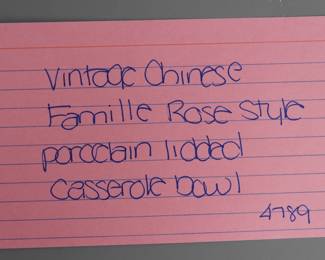 Vintage Chinese
Famille Rose Style
porcelain lidded
casserole bowl
4789